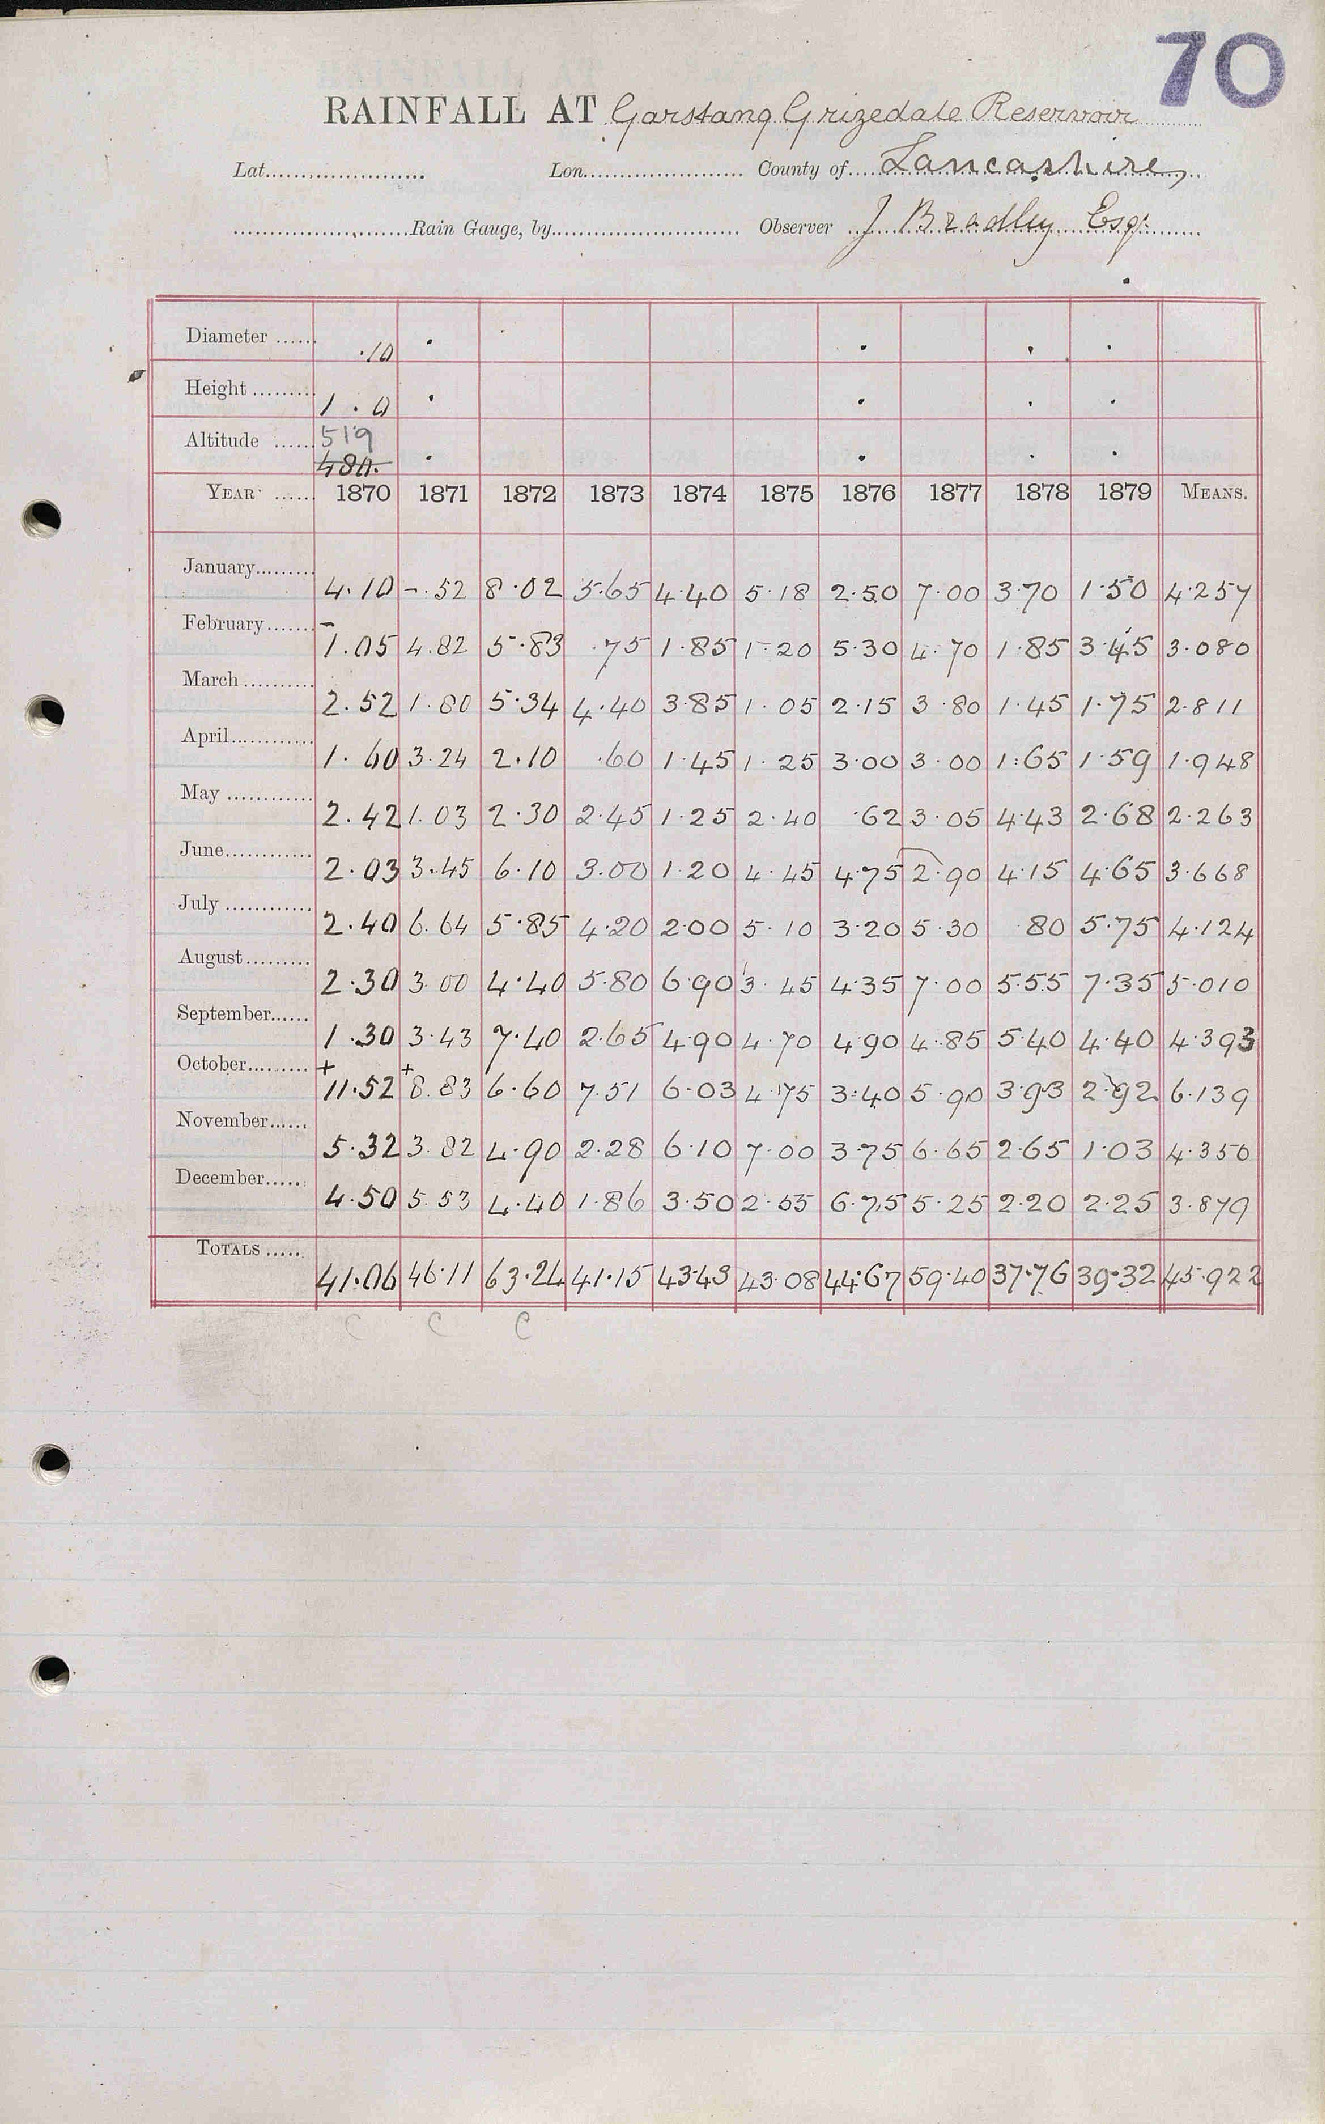 70
RAINFALL AT Garstang Grizedale Reservoir
Lat. Lon. County of Lancashire,
Rain Gauge, by Observer J Bradley Esqr
Diameter ·10
Height 1.0
Altitude 519
480.
YEAR 1870 1871 1872 1873 1874 1875 1876 1877 1878 1879 MEANS.
January 4.10 -.52 8.02 5.65 4.40 5.18 2.50 7.00 3.70 1.50 4.257
February 1.05 4.82 5.83 .75 1.85 1.20 5.30 4.70 1.85 3.45 3.080
March 2.52 1.80 5.34 4.40 3.85 1.05 2.15 3.80 1.45 1.75 2.811
April 1.60 3.24 2.10 .60 1.45 1.25 3.00 3.00 1.65 1.59 1.948
May 2.42 1.03 2.30 2.45 1.25 2.40 .62 3.05 4.43 2.68 2.263
June 2.03 3.45 6.10 3.00 1.20 4.45 4.75 2.90 4.15 4.65 3.668
July 2.40 6.64 5.85 4.20 2.00 5.10 3.20 5.30 .80 5.75 4.124
August 2.30 3.00 4.40 5.80 6.90 3.45 4.35 7.00 5.55 7.35 5.010
September 1.30 3.43 7.40 2.65 4.90 4.70 4.90 4.85 5.40 4.40 4.393
October + 11.52 + 8.83 6.60 7.51 6.03 4.75 3.40 5.90 3.93 2.92 6.139
November 5.32 3.82 4.90 2.28 6.10 7.00 3.75 6.65 2.65 1.03 4.350
December 4.50 5.53 4.40 1.86 3.50 2.55 6.75 5.25 2.20 2.25 3.879
TOTALS 41.06 46.11 63.24 41.15 43.43 43.08 44.67 59.40 37.76 39.32 45.922
C C C